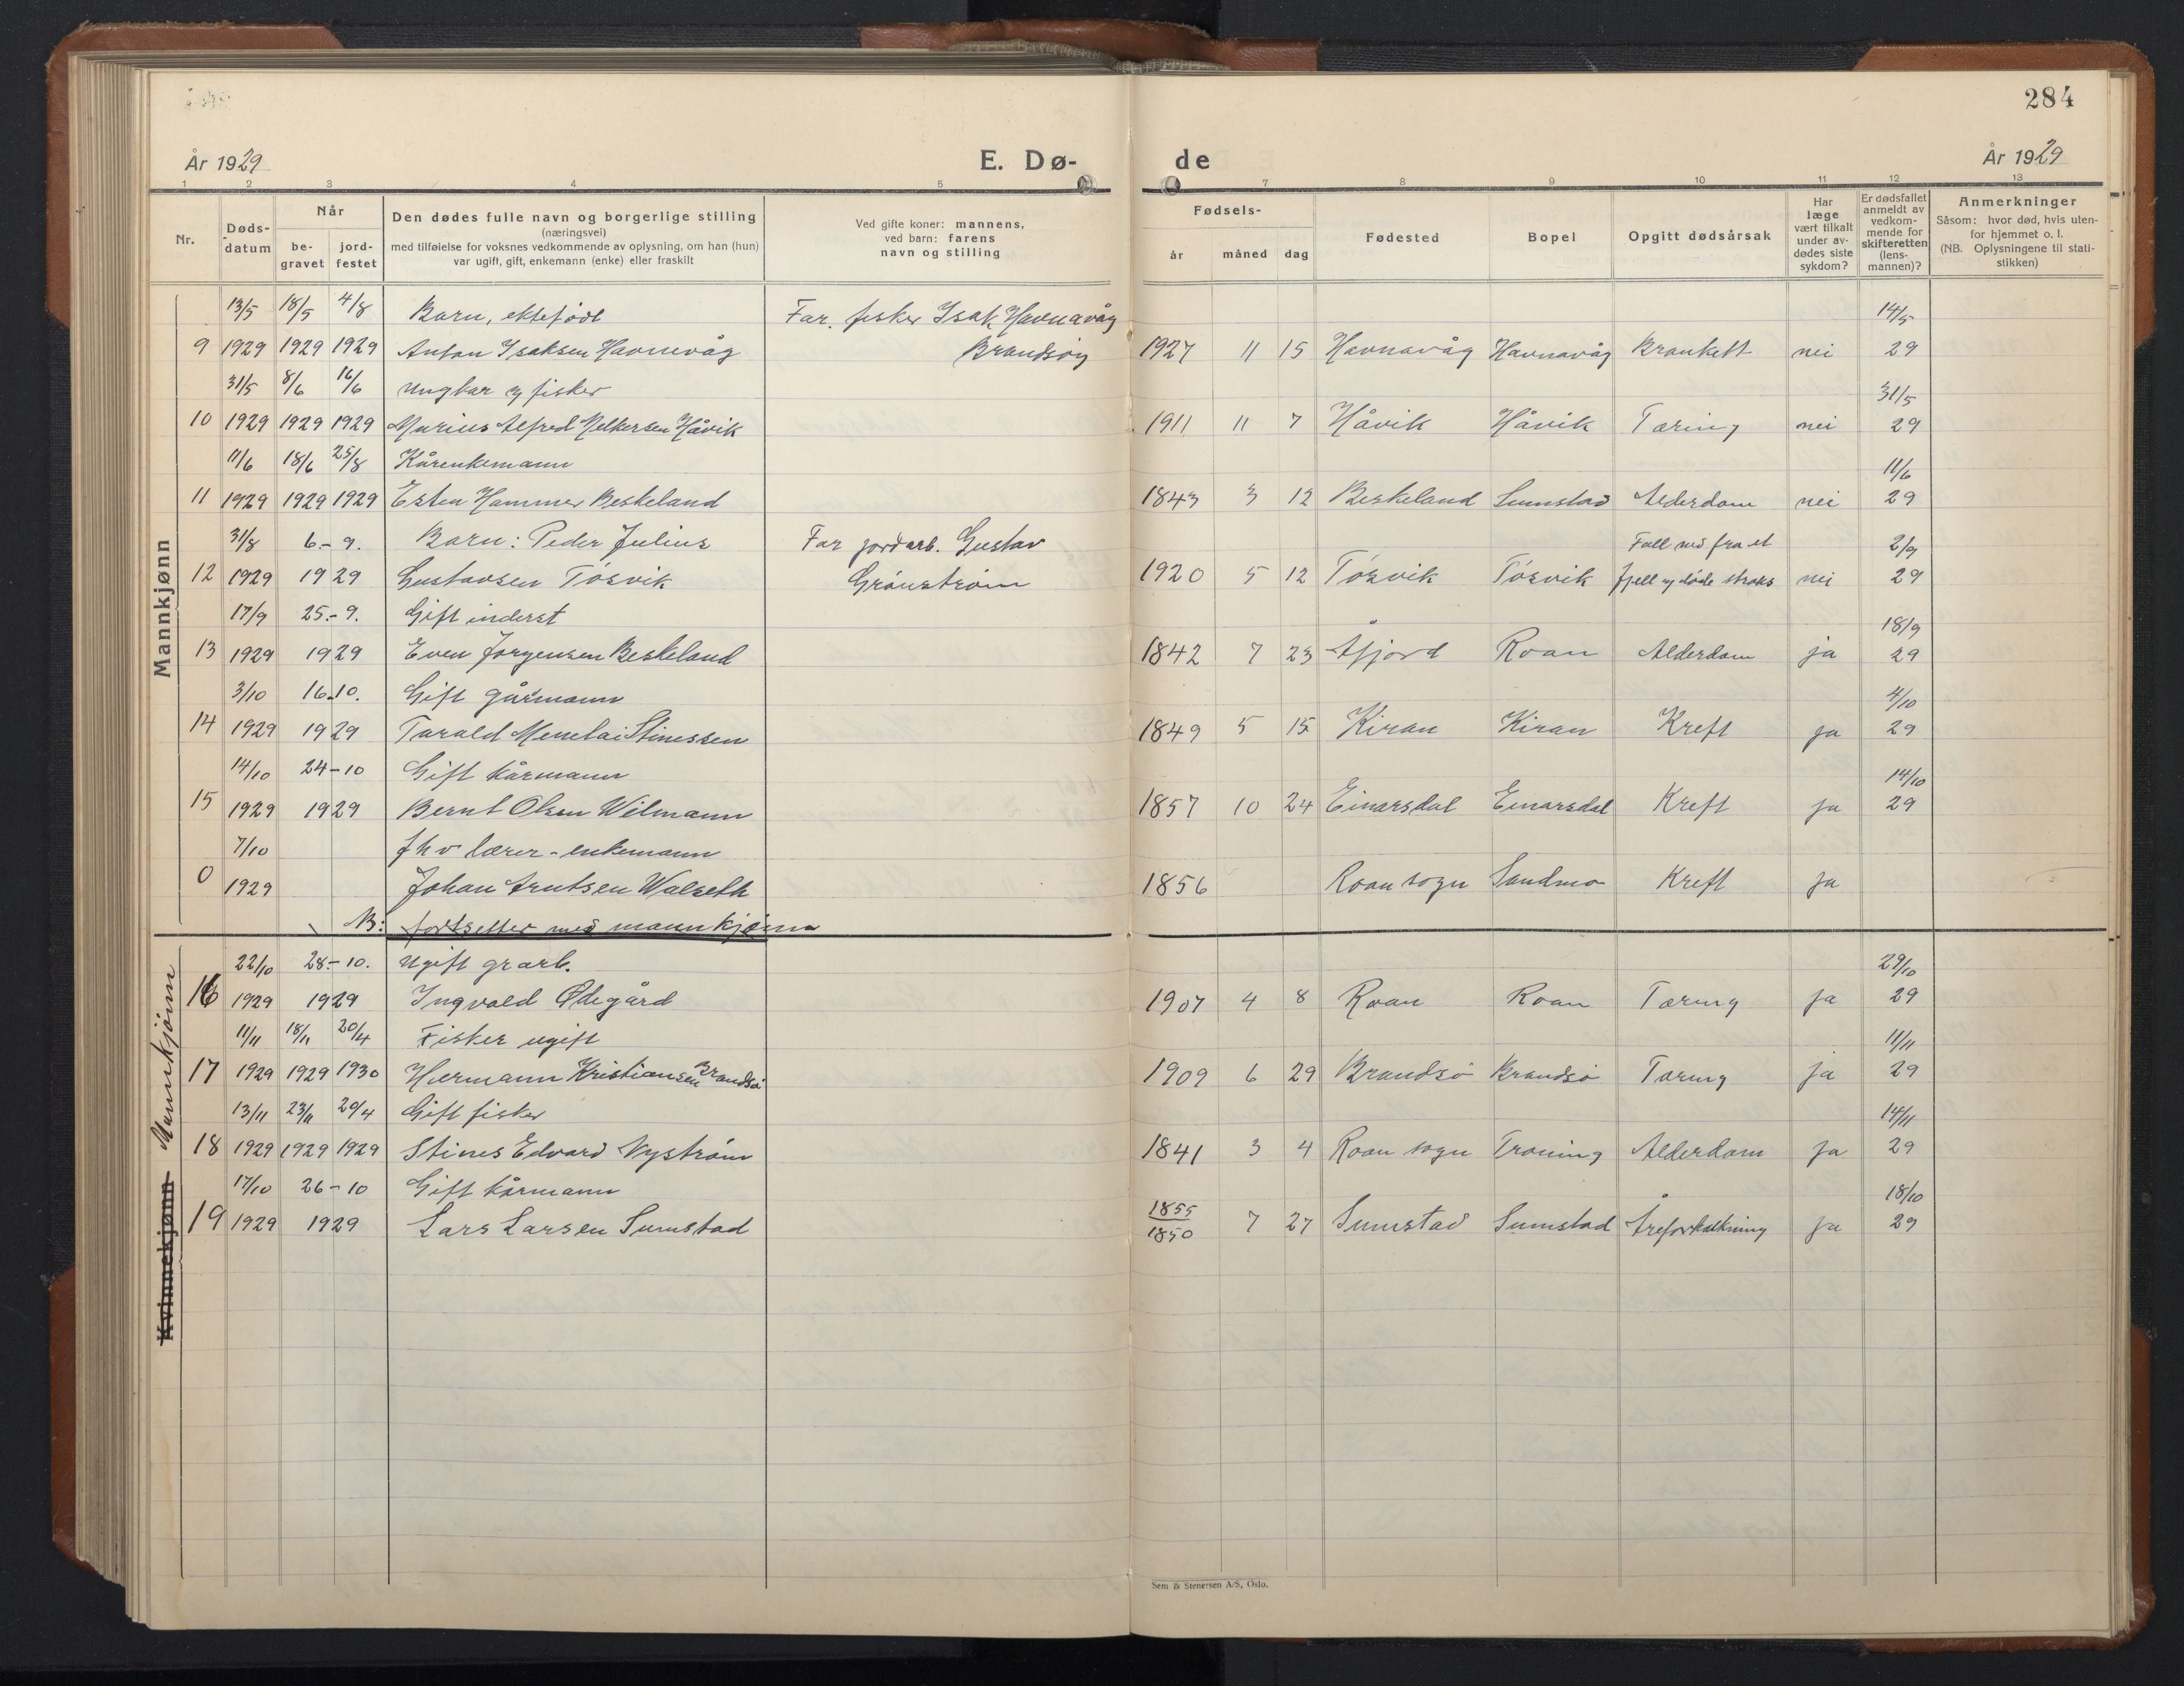 284
År 1929
E. Dø-
de
År 1929
1 2 3 4 5 7 8 9 10 11 12 13
Nr.
Døds-
datum
Når
be-
gravet
jord-
festet
Den dødes fulle navn og borgerlige stilling
(næringsvei)
med tilføielse for voksnes vedkommende av oplysning, om han (hun)
var ugift, gift, enkemann (enke) eller fraskilt
Ved gifte koner: mannens,
ved barn: farens
navn og stilling
Fødsels-
år måned dag
Fødested
Bopel
Opgitt dødsårsak
Har
læge
vært tilkalt
under av-
dødes siste
sykdom?
Er dødsfallet
anmeldt av
vedkom-
mende for
skifteretten
(lens-
mannen)?
Anmerkninger
Såsom: hvor død, hvis uten-
for hjemmet o. l.
(NB. Oplysningene til stati-
stikken)
Mannkjønn
13/5 18/5 4/8 Barn, ektefødt Far. fisker Isak Havnavåg 14/5
9 1929 1929 1929 Anton Isaksen Havnevåg Brandsøy 1927 11 15 Havnavåg Havnavåg Brankett nei 29
31/5 8/6 16/6 Ungkar og fisker 31/5
10 1929 1929 1929 Marius Alfred Melkersen Håvik 1911 11 7 Håvik Håvik Tæring nei 29
11/6 18/6 25/8 Kårenkemann 11/6
11 1929 1929 1929 Esten Hammer Beskeland 1843 3 12 Beskeland Sumstad Alderdom nei 29
31/8 6.-9. Barn: Peder Julius Far jordarb. Gustav Fall ned fra et 2/9
12 1929 1929 Gustavsen Tøsvik Grønstrøm 1920 5 12 Tøsvik Tøsvik fjell og døde straks nei 29
17/9 25.-9. Gift inderst 18/9
13 1929 1929 Even Jørgensen Beskeland 1842 7 23 Åfjord Roan Alderdom ja 29
3/10 16.10. Gift gårmann 4/10
14 1929 1929 Tarald Menelai Stinessen 1849 5 15 Kiran Kiran Kreft ja 29
14/10 24-10 Gift kårmann 14/10
15 1929 1929 Bernt Olsen Wilmann 1857 10 24 Einarsdal Einarsdal Kreft ja 29
7/10 fhv lærer - enkemann
0 1929 Johan Arntsen Walseth 1856 Roan sogn Sandmo Kreft ja
B: fortsetter med mannkjønn
Kvinnekjønn Mannkjønn
22/10 28.-10. Ugift grarb. 29/10
16 1929 1929 Ingvald Ødegård 1907 4 8 Roan Roan Tæring ja 29
11/11 18/11 20/4 Fisker ugift 11/11
17 1929 1929 1930 Hermann Kristiansen Brandsø 1909 6 29 Brandsø Brandsø Tæring ja 29
13/11 23/11 20/4 Gift fisker 14/11
18 1929 1929 1929 Stines Edvard Nystrøm 1841 3 4 Roan sogn Troning Alderdom ja 29
17/10 26-10 Gift kårmann 18/10
19 1929 1929 Lars Larsen Sumstad 1855/1850 7 27 Sumstad Sumstad Åreforkalkning ja 29
Sem & Stenersen A/S, Oslo.